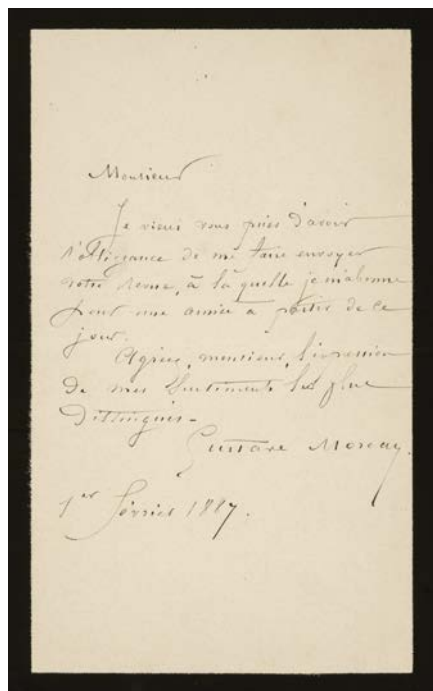 Monsieur
Je viens vous prier d'avoir
l'obligeance de me faire envoyer
votre Revue, à laquelle je m'abonne
pour une année à partir de ce
jour.
Agréez, monsieur, l'expression
de mes sentiments les plus
distingués-
Gustave Moreau.
1er février 1887.